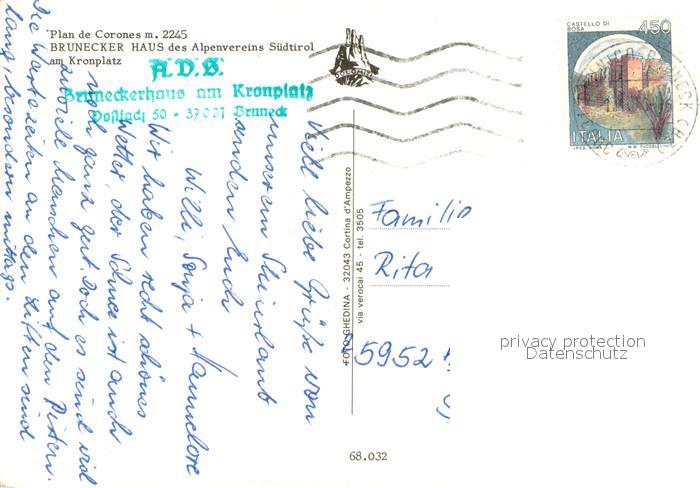 Plan de Corones m. 2245
BRUNECKER HAUS des Alpenvereins Südtirol
am Kronplatz
A.V.S.
Bruneckerhaus am Kronplatz
Postfach 50 - 39031 Bruneck
CASTELLO DI
BOSA
450
ITALIA
Viele liebe Grüße vom
unserem Skiurlaub
senden Euch
Willi, Sonja + Hannelore
Wir haben recht schönes
Wetter, der Schnee ist auch
noch ganz gut. Doch es sind viel
zuviele Menschen auf den Pisten.
Die Wartezeiten an den Liften sind
lang, besonders mittags.
FOTO GHEDINA - 32043 Cortina d'Ampezzo
via verocai 45 - tel. 3505
Familie
Rita
5952
privacy protection
Datenschutz
68.032